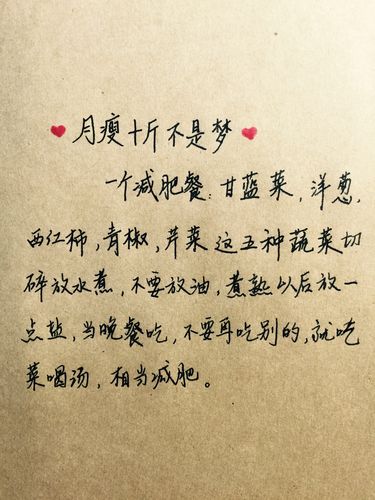 月瘦十斤不是梦
一个减肥餐：甘蓝菜，洋葱，
西红柿，青椒，芹菜这五种蔬菜切
碎放水煮，不要放油，煮熟以后放一
点盐，当晚餐吃，不要再吃别的，就吃
菜喝汤，相当减肥。